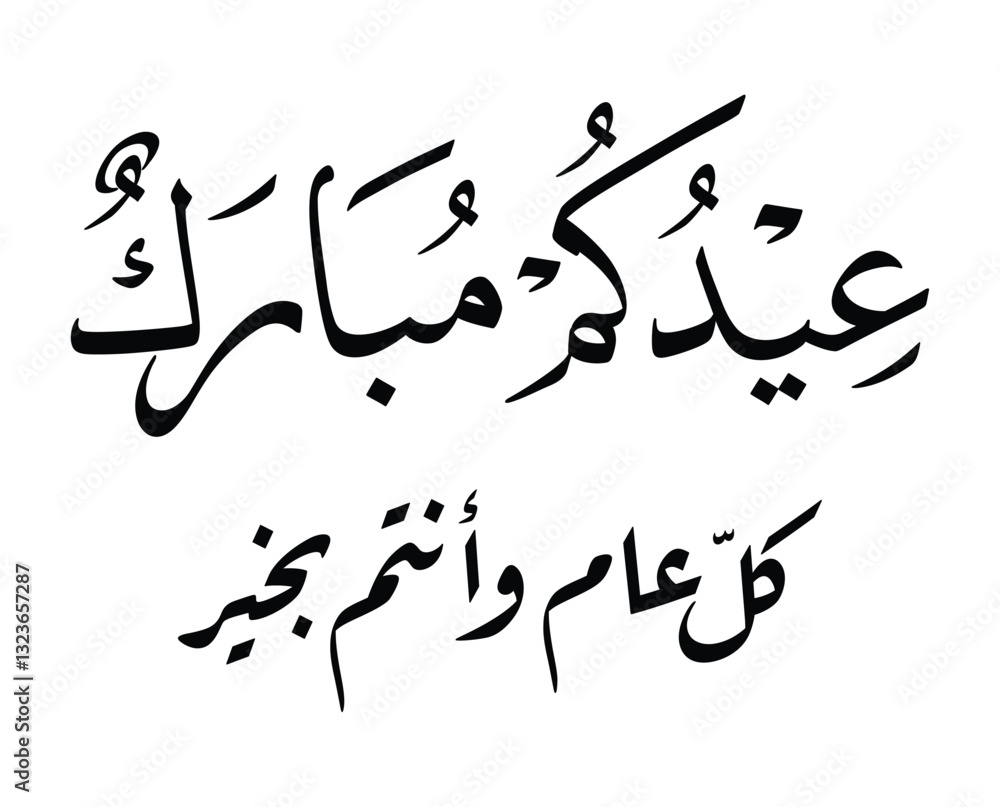 عِيْدُكُمْ مُبَارَكٌ
كلّ عام وأنتم بخير
Adobe Stock | #1323657287